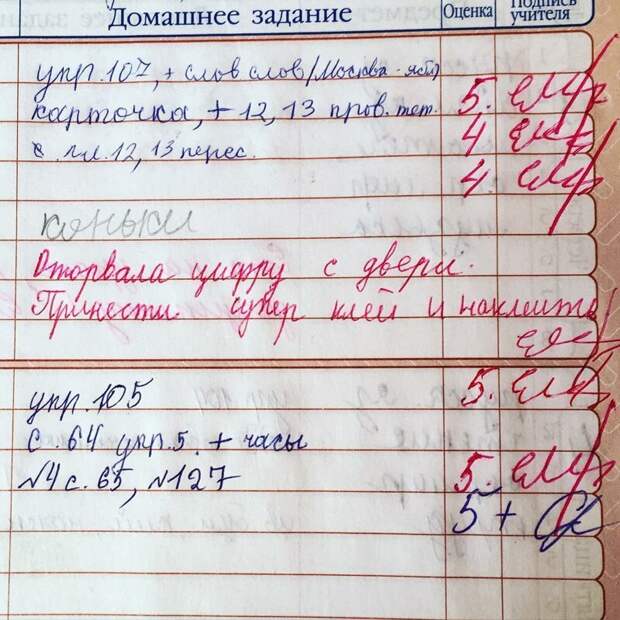 Домашнее задание Оценка Подпись учителя
упр. 107, + слов слов (Москва -
карточка, + 12, 13 пров. тет. 5.
4
с. 12, 13 перес. 4.
коньки
Оторвала цифру с двери.
Принести супер клей и наклеить
упр. 105 5.
с. 64 упр. 5. + часы
№4 с. 65, №127 5.
5+